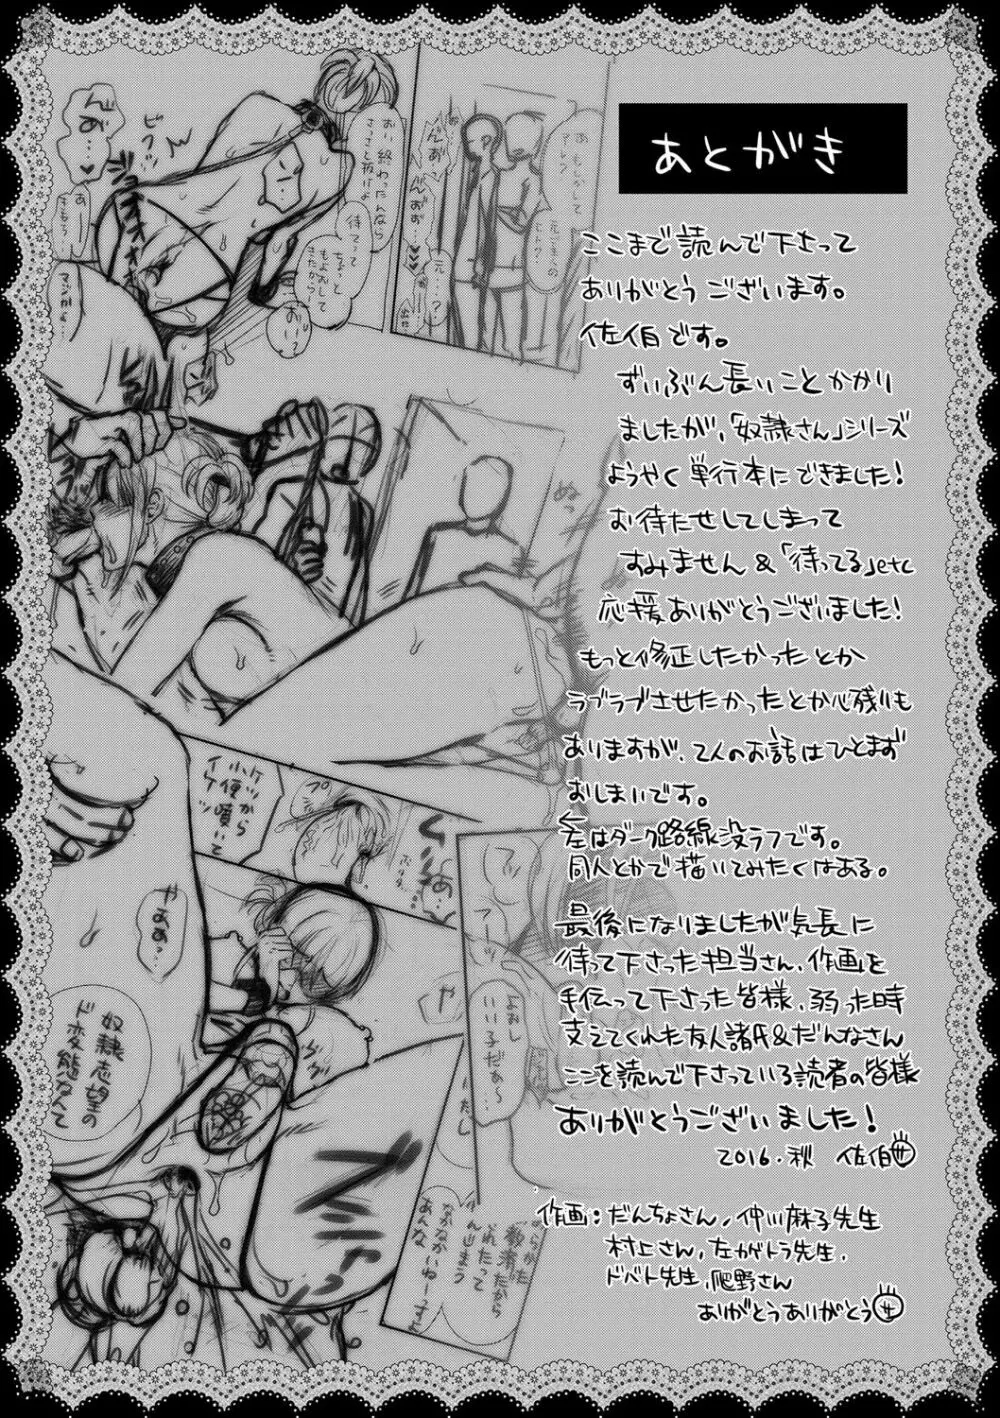 あとがき
ここまで読んで下さって
ありがとうございます。
佐伯です。
ずいぶん長いことかかり
ましたが、「奴隷さん」シリーズ
ようやく単行本にできました!
お待たせしてしまって
すみません&「待ってる」etc
応援ありがとうございました!
もっと修正したかったとか
ラブラブさせたかったとか心残りも
ありますが、2人のお話はひとまず
おしまいです。
左はダーク路線没ラフです。
同人とかで描いてみたくはある。
最後になりましたが気長に
待って下さった担当さん、作画を
手伝って下さった皆様、弱った時
支えてくれた友人諸氏&だんなさん
ここを読んで下さっている読者の皆様
ありがとうございました!
2016.秋 佐伯
作画:だんちょさん、仲川麻子先生
村上さん、たがトラ先生、
ドバト先生、爬野さん
ありがとうありがとう
おい終わったんなら
さっさと
待てって
ちょっと
もよおして
きたから
おい?
あ、もしかして
アレ?
ぬっ
ケツから
小便噴いて
イケッ
やよぉ…
奴隷志望の
ド変態なんて
よぉし
いい子だぁ〜
なかなかいねー